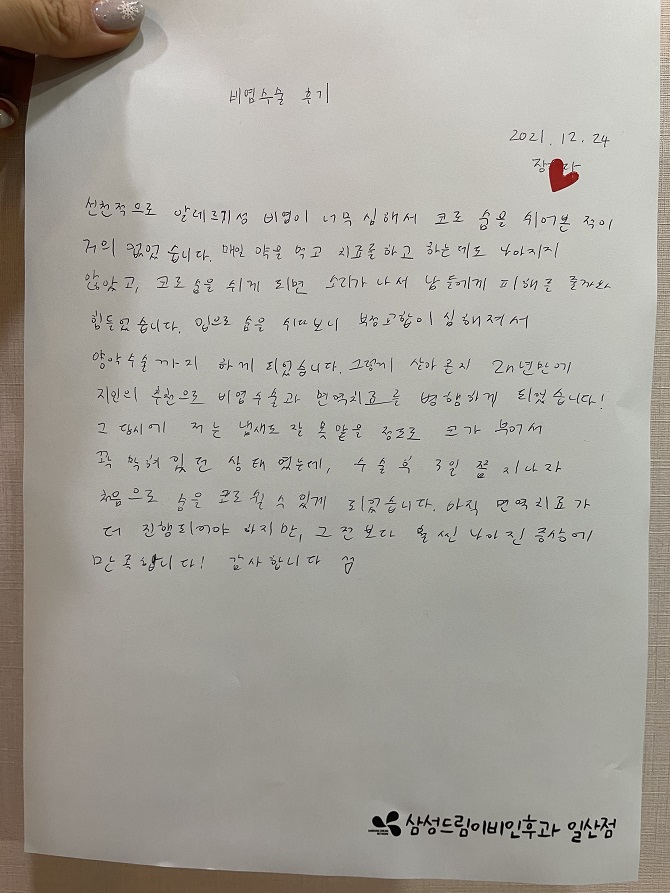 비염수술 후기
2021. 12. 24
선천적으로 알레르기성 비염이 너무 심해서 코로 숨을 쉬어본 적이
거의 없었습니다. 매일 약을 먹고 치료를 하고 하는데도 나아지지
않았고, 코로 숨을 쉬게 되면 소리가 나서 남들에게 피해를 줄까봐
힘들었습니다. 입으로 숨을 쉬다보니 부정교합이 심해져서
양악수술까지 하게 되었습니다. 그렇게 살아온지 2n년만에
지인의 추천으로 비염수술과 면역치료를 병행하게 되었습니다!
그 당시에 저는 냄새도 잘 못맡을 정도로 코가 부어서
꽉 막혀 있던 상태였는데, 수술 후 3일 쯤 지나자
처음으로 숨을 코로 쉴 수 있게 되었습니다. 아직 면역치료가
더 진행되어야 하지만, 그 전보다 훨씬 나아진 증상에
만족합니다! 감사합니다
삼성드림이비인후과 일산점